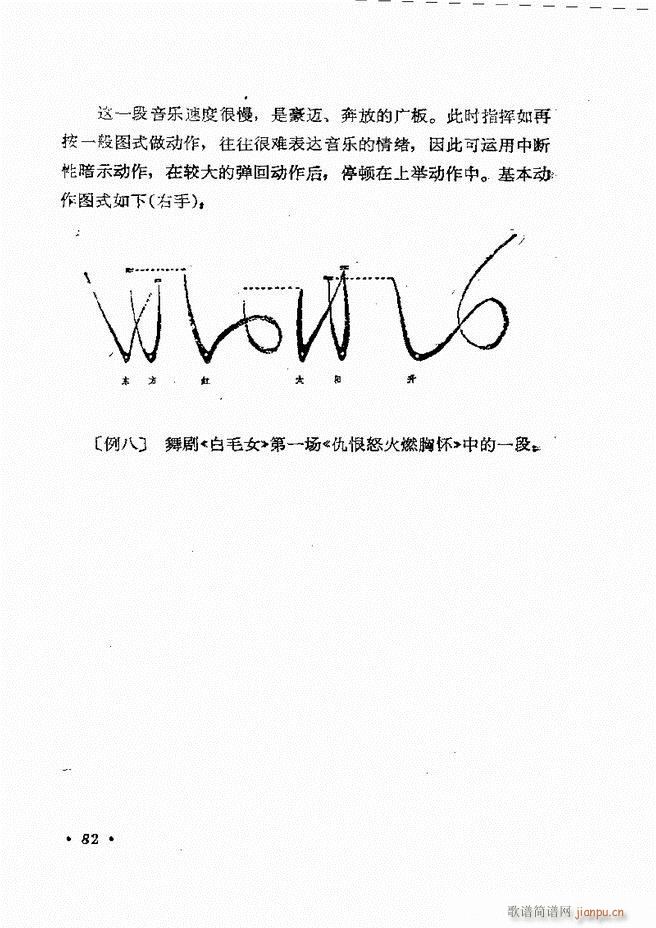 这一段音乐速度很慢，是豪迈、奔放的广板。此时指挥如再
按一般图式做动作，往往很难表达音乐的情绪，因此可运用中断
性暗示动作，在较大的弹回动作后，停顿在上举动作中。基本动
作图式如下(右手)：
东 方 红 太 阳 升
〔例八〕 舞剧《白毛女》第一场《仇恨怒火燃胸怀》中的一段。
· 82 ·
歌谱简谱网 jianpu.cn